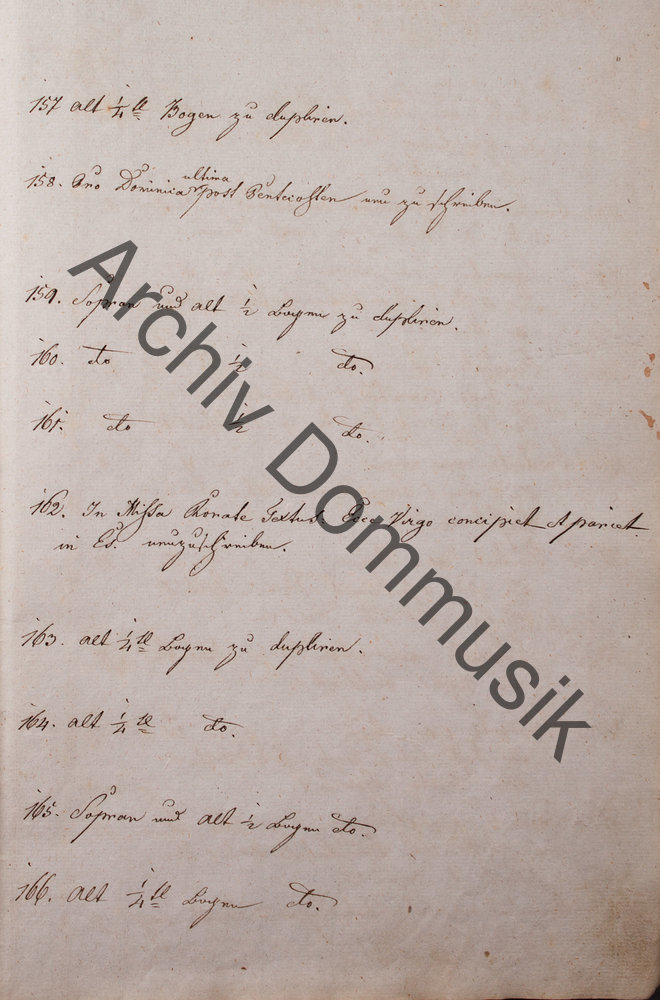 157 Alt 1/4tl Bogen zu dupliren.
158. Pro Dominica ultima post Pentecosten neu zu schreiben.
159. Sopran und Alt 1/2 Bogen zu dupliren.
160. do 1/2 do.
161. do 1/2 do.
162. In Missa Rorate Textus. Ecce Virgo concipiet et pariet.
in Es. neuzuschreiben.
163. Alt 1/4tl Bogen zu dupliren.
164. Alt 1/4tl do.
165. Sopran und Alt 1/2 Bogen do.
166. Alt 1/4tl Bogen do.
Archiv Dommusik